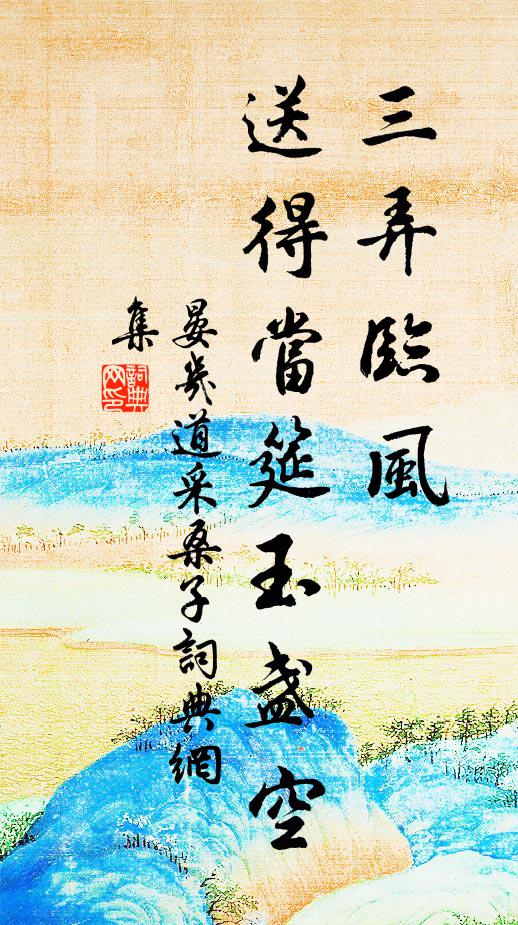 三弄臨風
送得當筵玉盏空
晏幾道采桑子詞典網
集
詞典
网印